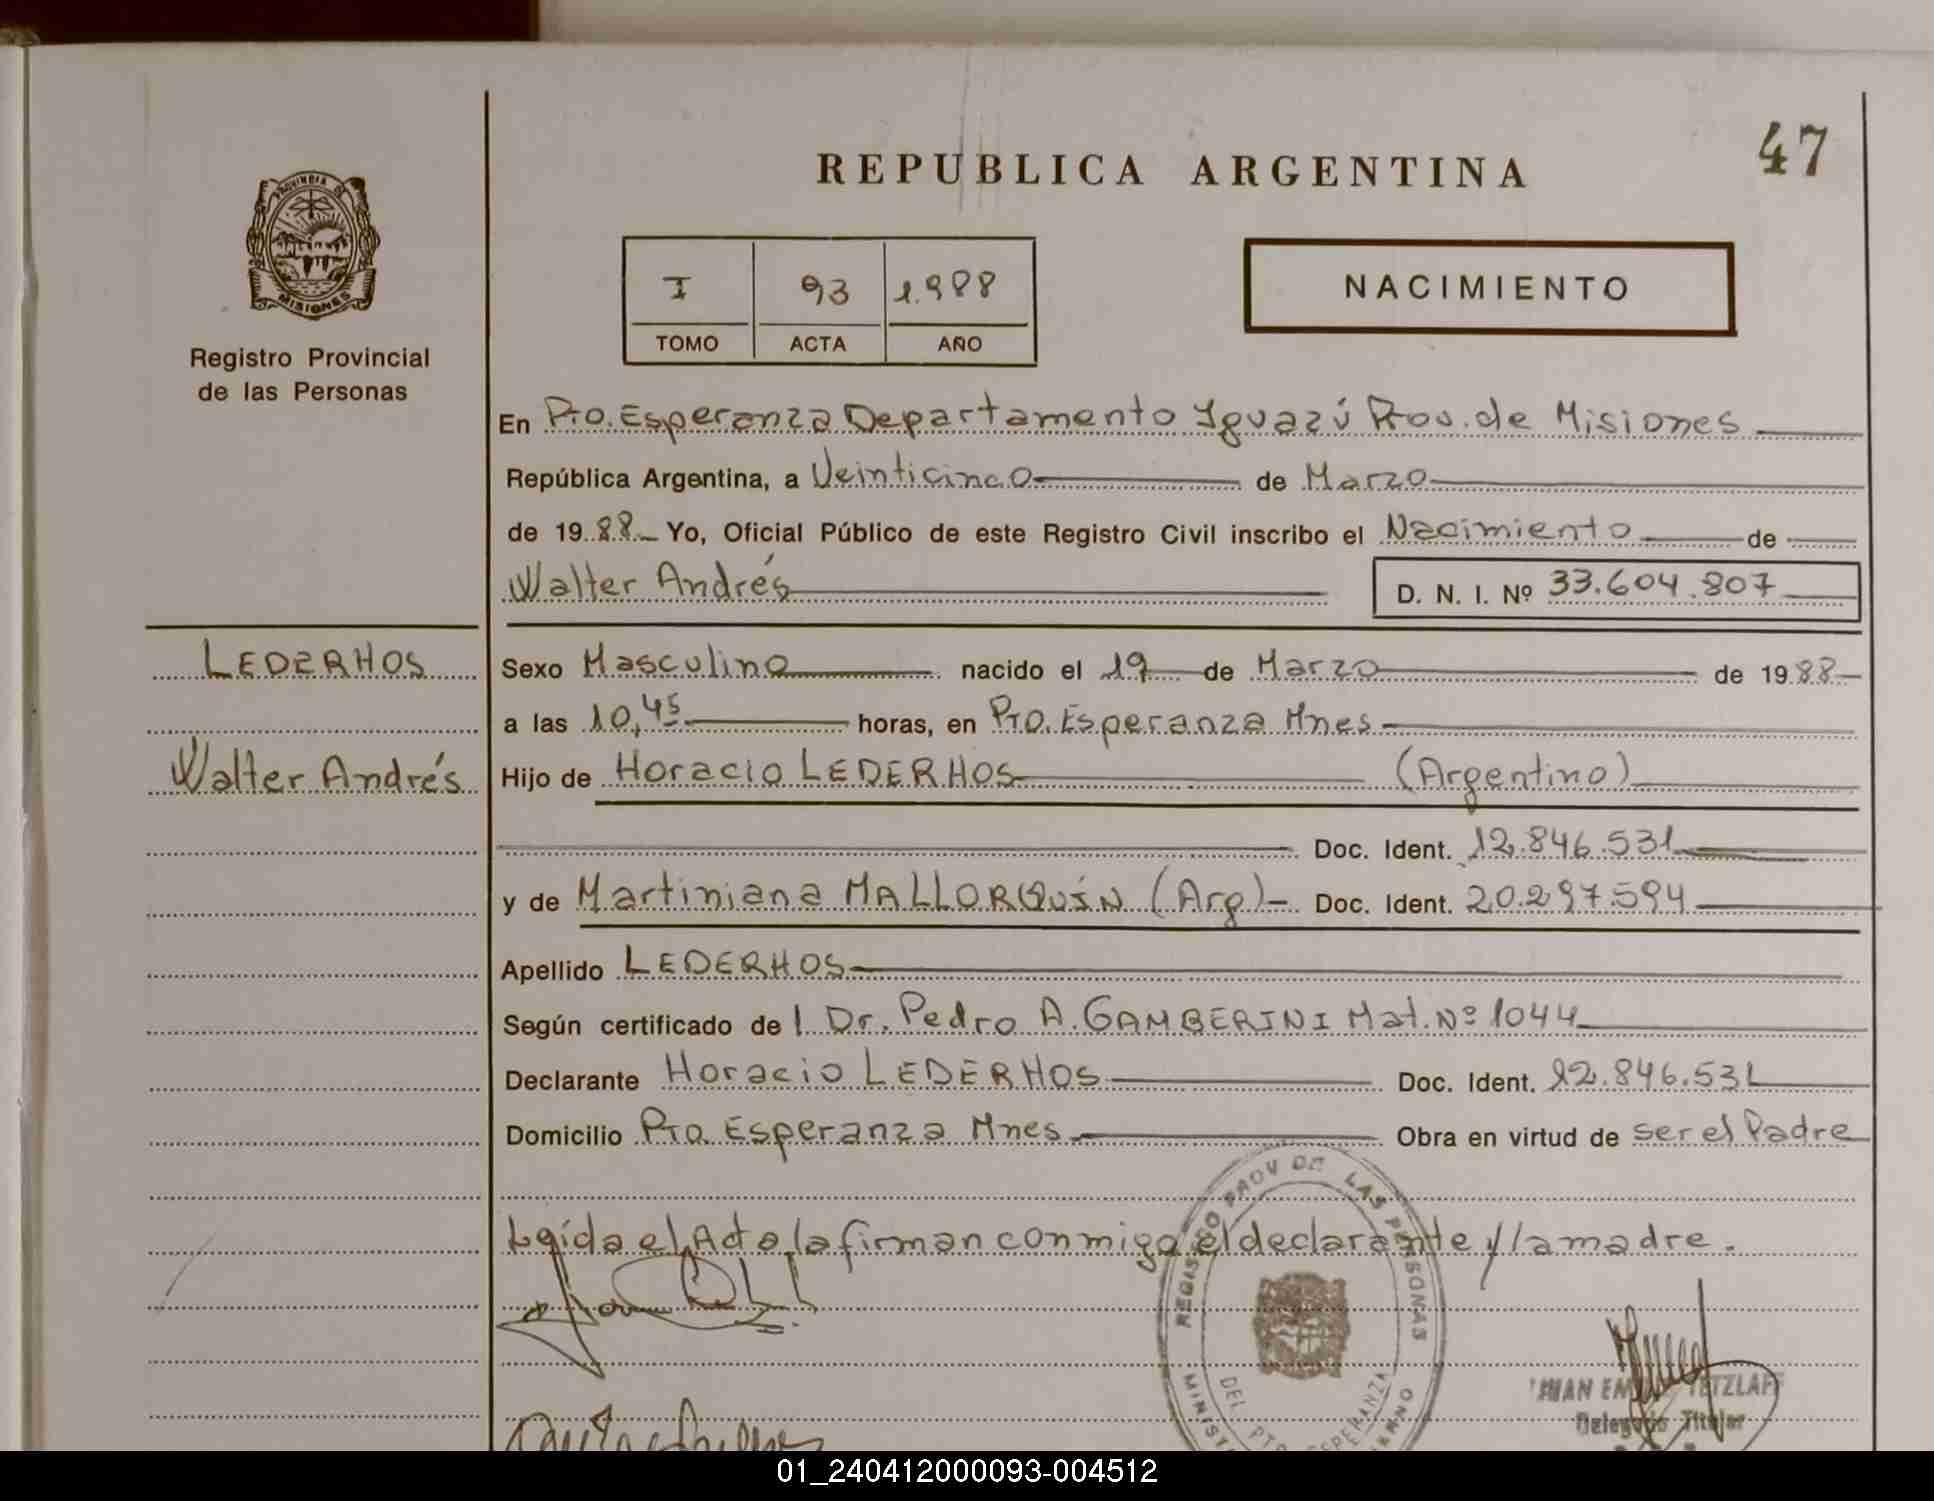 47
REPUBLICA ARGENTINA
PROVINCIA DE
MISIONES
Registro Provincial
de las Personas
I 93 1.988
TOMO ACTA AÑO
NACIMIENTO
En Pto. Esperanza Departamento Iguazú Prov. de Misiones
República Argentina, a Veinticinco de Marzo
de 19 88 Yo, Oficial Público de este Registro Civil inscribo el Nacimiento de
Walter Andrés D. N. I. Nº 33.604.807
LEDERHOS
Walter Andrés
Sexo Masculino nacido el 19 de Marzo de 19 88
a las 10,45 horas, en Pto. Esperanza Mnes
Hijo de Horacio LEDERHOS (Argentino)
Doc. Ident. 12.846.531
y de Martiniana MALLORQUÍN (Arg) Doc. Ident. 20.297.594
Apellido LEDERHOS
Según certificado de l Dr. Pedro A. GAMBERINI Mat. Nº 1044
Declarante Horacio LEDERHOS Doc. Ident. 12.846.531
Domicilio Pto. Esperanza Mnes Obra en virtud de ser el Padre
Leída el Acta, la firman conmigo el declarante y la madre.
REGISTRO PROV DE LAS PERSONAS
DEL PTO ESPERANZA
JUAN TETZLAFF
Delegado Titular
01_240412000093-004512